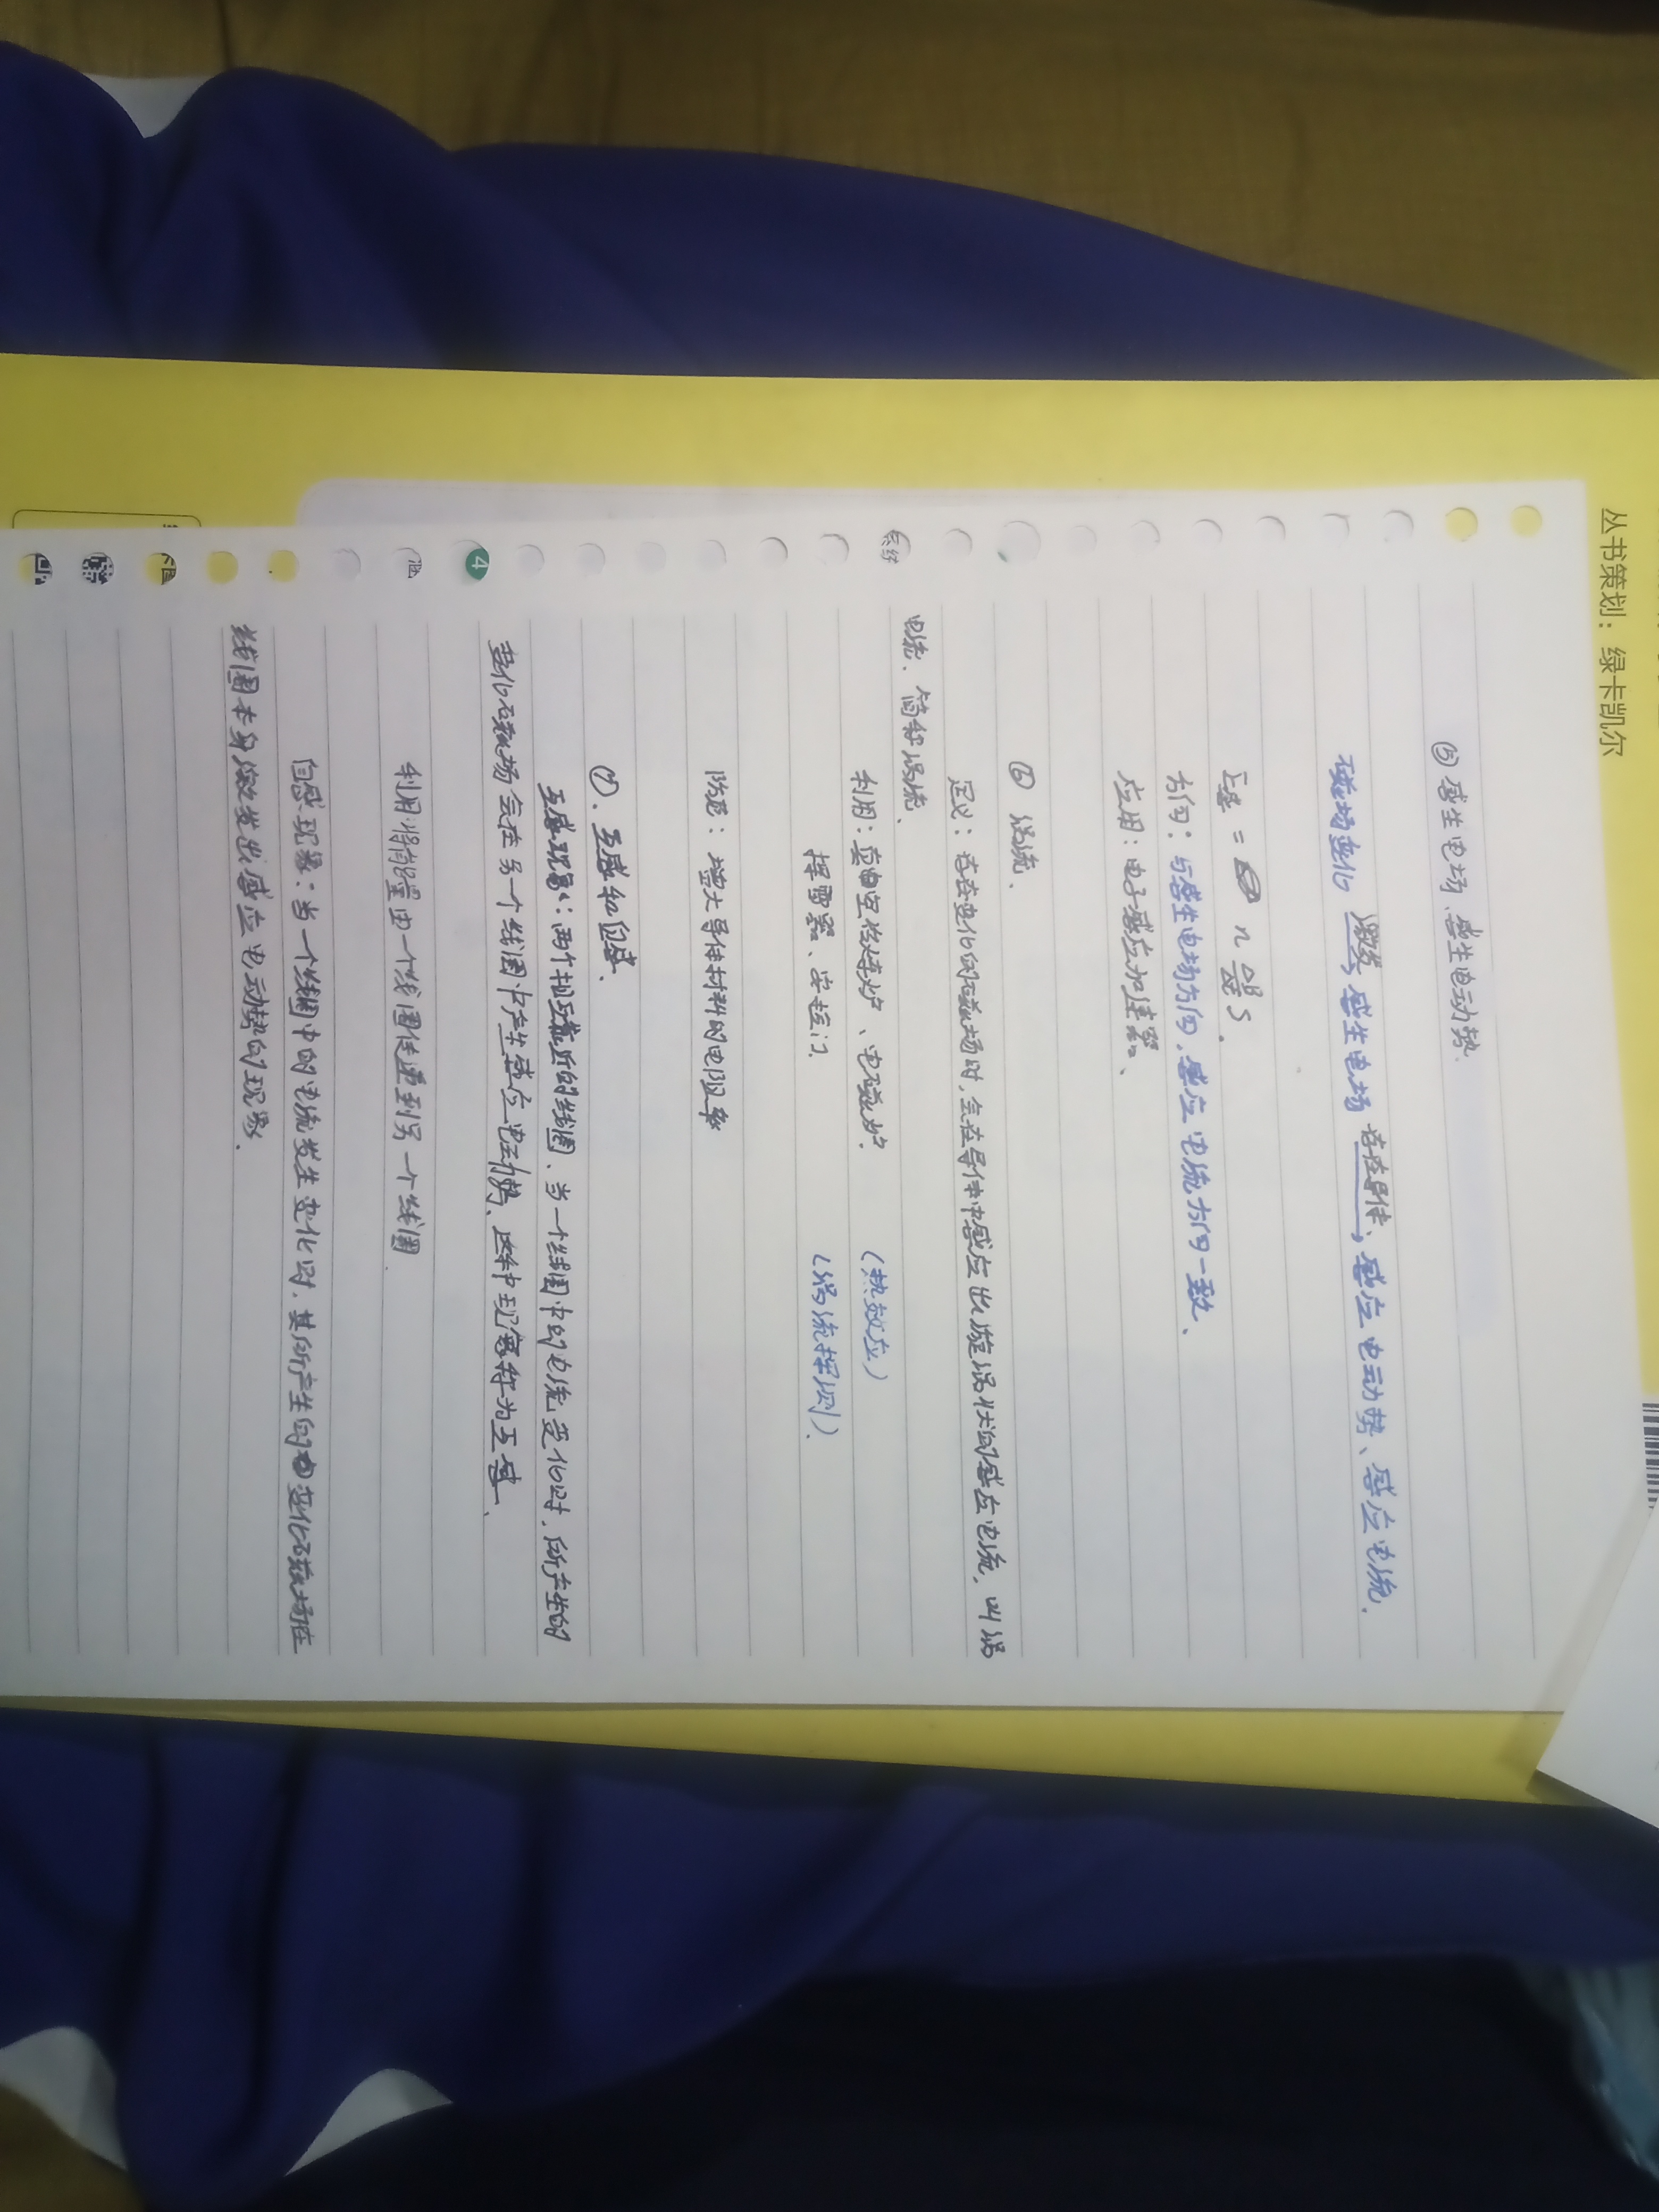 丛书策划：绿卡凯尔
⑤感生电场、感生电动势.
磁场变化 激发 感生电场 若在导体、感应电动势、感应电流.
E感 = n ΔB/Δt S.
方向：与感生电场方向、感应电流方向一致、
应用：电子感应加速器、
⑥ 涡流.
定义：若在变化的磁场时，会在导体中感应出漩涡状的感应电流，叫涡
电流、简称涡流、
利用：真空冶炼炉、电磁炉. (热效应)
探雷器、安检门. (涡流探测).
防范：增大导体材料的电阻率
⑦. 互感和自感、
互感现象：两个相互靠近的线圈、当一个线圈中的电流变化时，所产生的
变化磁场会在另一个线圈中产生感应电动势、这种现象称为互感、
利用：将能量由一个线圈传递到另一个线圈.
自感现象：当一个线圈中的电流发生变化时，其所产生的变化磁场在
线圈本身激发出感应电动势的现象.
4